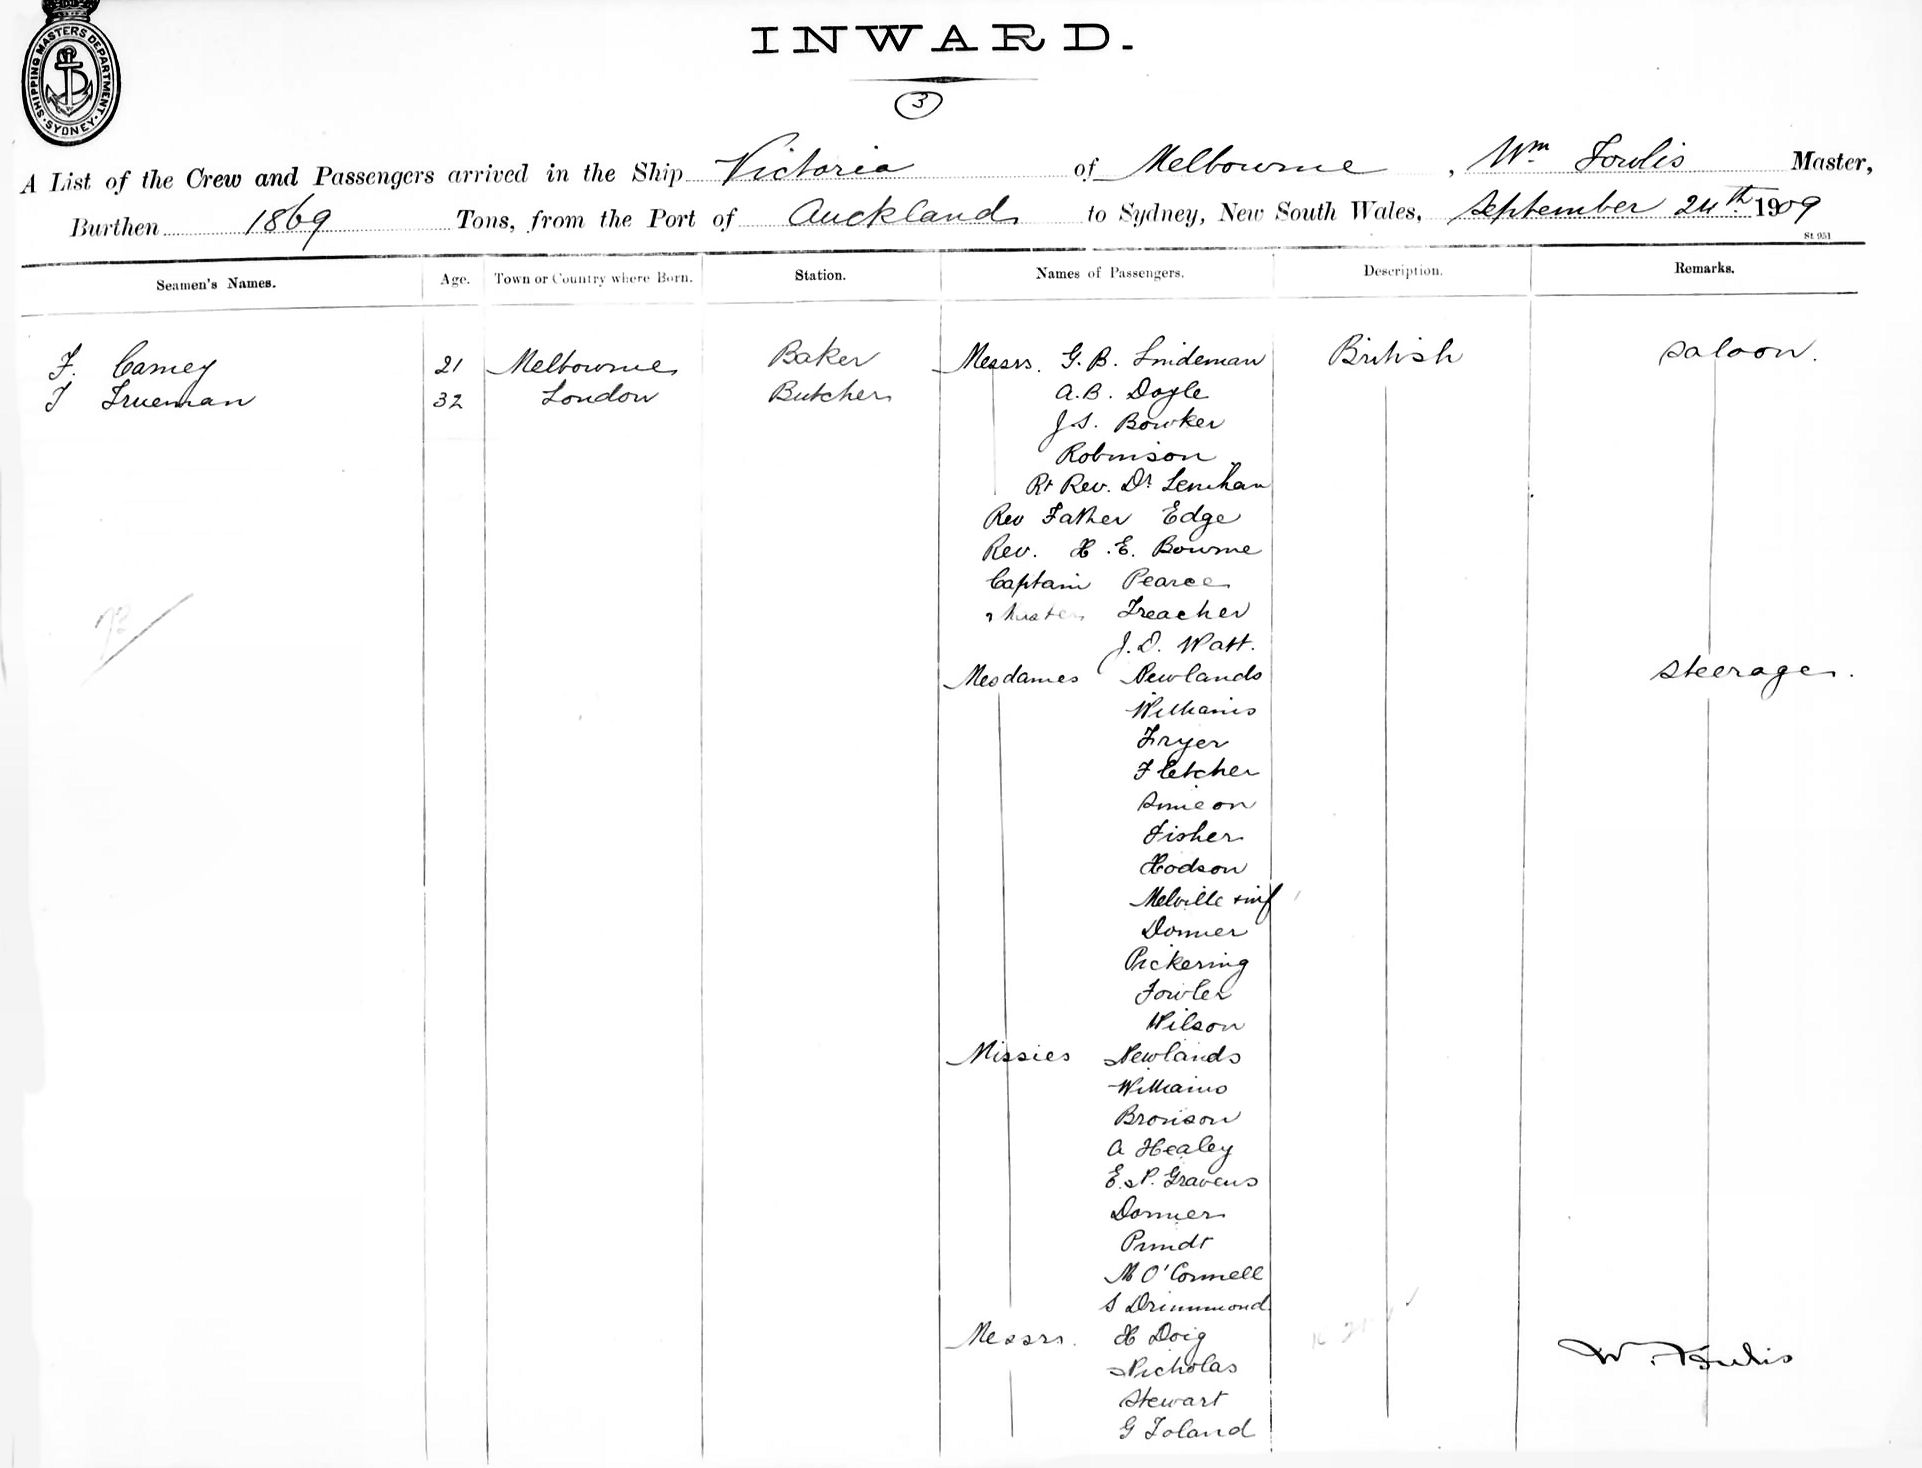 SHIPPING MASTERS DEPARTMENT. SYDNEY.
INWARD.
3
A List of the Crew and Passengers arrived in the Ship Victoria of Melbourne, Wm Foulis Master,
Burthen 1869 Tons, from the Port of Auckland to Sydney, New South Wales, September 24th 1909
St 951
Seamen's Names. Age. Town or Country where Born. Station. Names of Passengers. Description. Remarks.
F. Carney 21 Melbourne Baker Messrs. G. B. Lindeman British Saloon.
T Trueman 32 London Butcher A. B. Doyle
J. S. Bowker
Robinson
Rt Rev. Dr Lenihan
Rev Father Edge
Rev. H. E. Bourne
Captain Pearce
Master Treacher
J. D. Watt.
Mesdames Newlands Steerage.
Williams
Fryer
Fletcher
Simeon
Fisher
Hodson
Melville + inf
Donner
Pickering
Fowler
Wilson
Missies Newlands
Williams
Bronson
A Healey
E. & P. Gravens
Donner
Prindt
M O'Connell
S Drummond
Messrs. H Doig
Nicholas W. Foulis
Stewart
G Toland